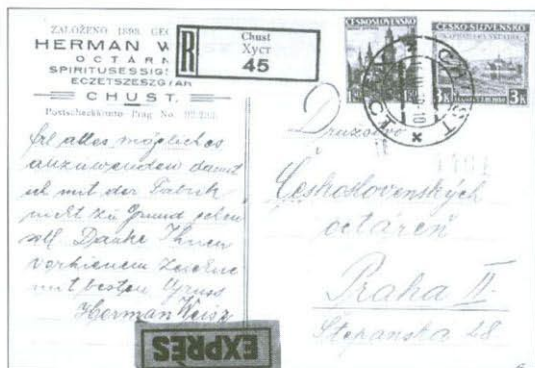 ZALOŽENO 1899. GEG
HERMAN W
OCTÁRN
SPIRITUSESSIG
ECZETSZESZGYÁR
CHUST.
Postscheckkonto Prag No.
R
Chust
Хуст
45
ČESKOSLOVENSKO
ČESKO-SLOVENSKO
3K
3K
CHUST
alles mögliches
anzuwenden damit
ich mit der Fabrik
nicht zu Grund gehen
soll. Danke Ihnen
mit besten Gruss
Herman Weisz
Družstvo
Československých
octáren
Praha II.
Stepanska 28
EXPRÈS